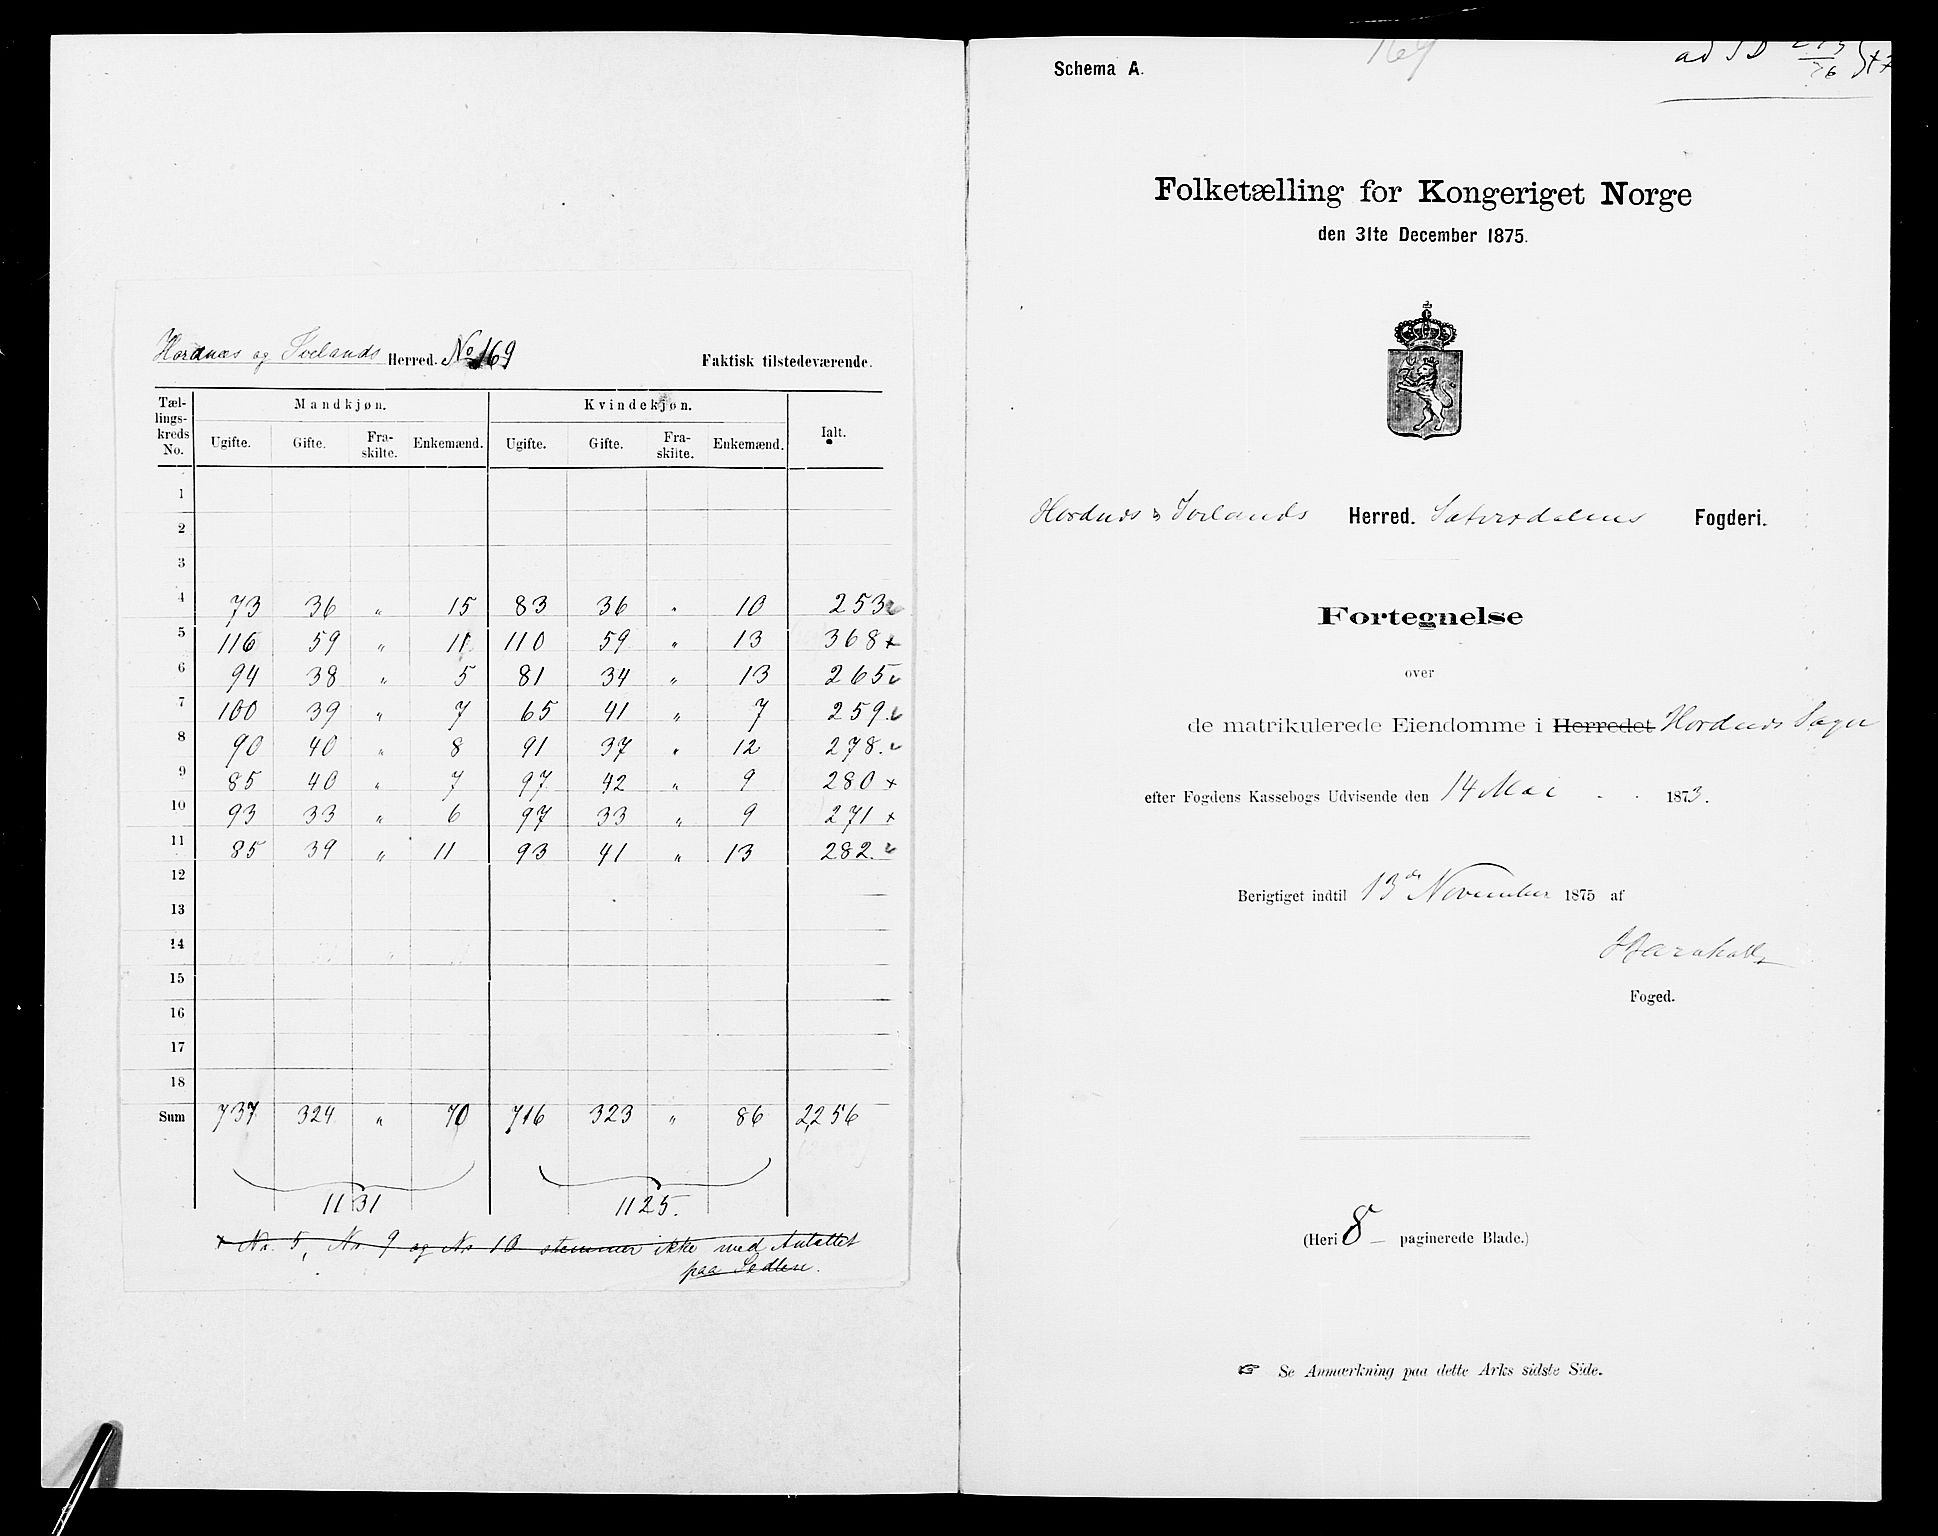 Hordnæs og Ivelands Herred. No 169
Faktisk tilstedeværende.
Tæl-lings-kreds No. Mandkjøn. Kvindekjøn. Ialt.
Ugifte. Gifte. Fra-skilte. Enkemænd. Ugifte. Gifte. Fra-skilte. Enkemænd.
1
2
3
4 73 36 " 15 83 36 " 10 253
5 116 59 " 11 110 59 " 13 368 +
6 94 38 " 5 81 34 " 13 265
7 100 39 " 7 65 41 " 7 259.
8 90 40 " 8 91 37 " 12 278.
9 85 40 " 7 97 42 " 9 280 +
10 93 33 " 6 97 33 " 9 271 +
11 85 39 " 11 93 41 " 13 282.
12
13
14
15
16
17
18
Sum 737 324 " 70 716 323 " 86 2256
1131 1125.
+ No. 5, No. 9 og No 10 stemmer ikke med Antallet
paa Sedlen.
169
Schema A.
Folketælling for Kongeriget Norge
den 31te December 1875.
Hordnes & Ivelands Herred. Sætersdalens Fogderi.
Fortegnelse
over
de matrikulerede Eiendomme i Herredet Hordnes Sogn
efter Fogdens Kassebogs Udvisende den 14 Mai 1873.
Berigtiget indtil 13de November 1875 af
Foged.
(Heri 8 paginerede Blade.)
☞ Se Anmærkning paa dette Arks sidste Side.